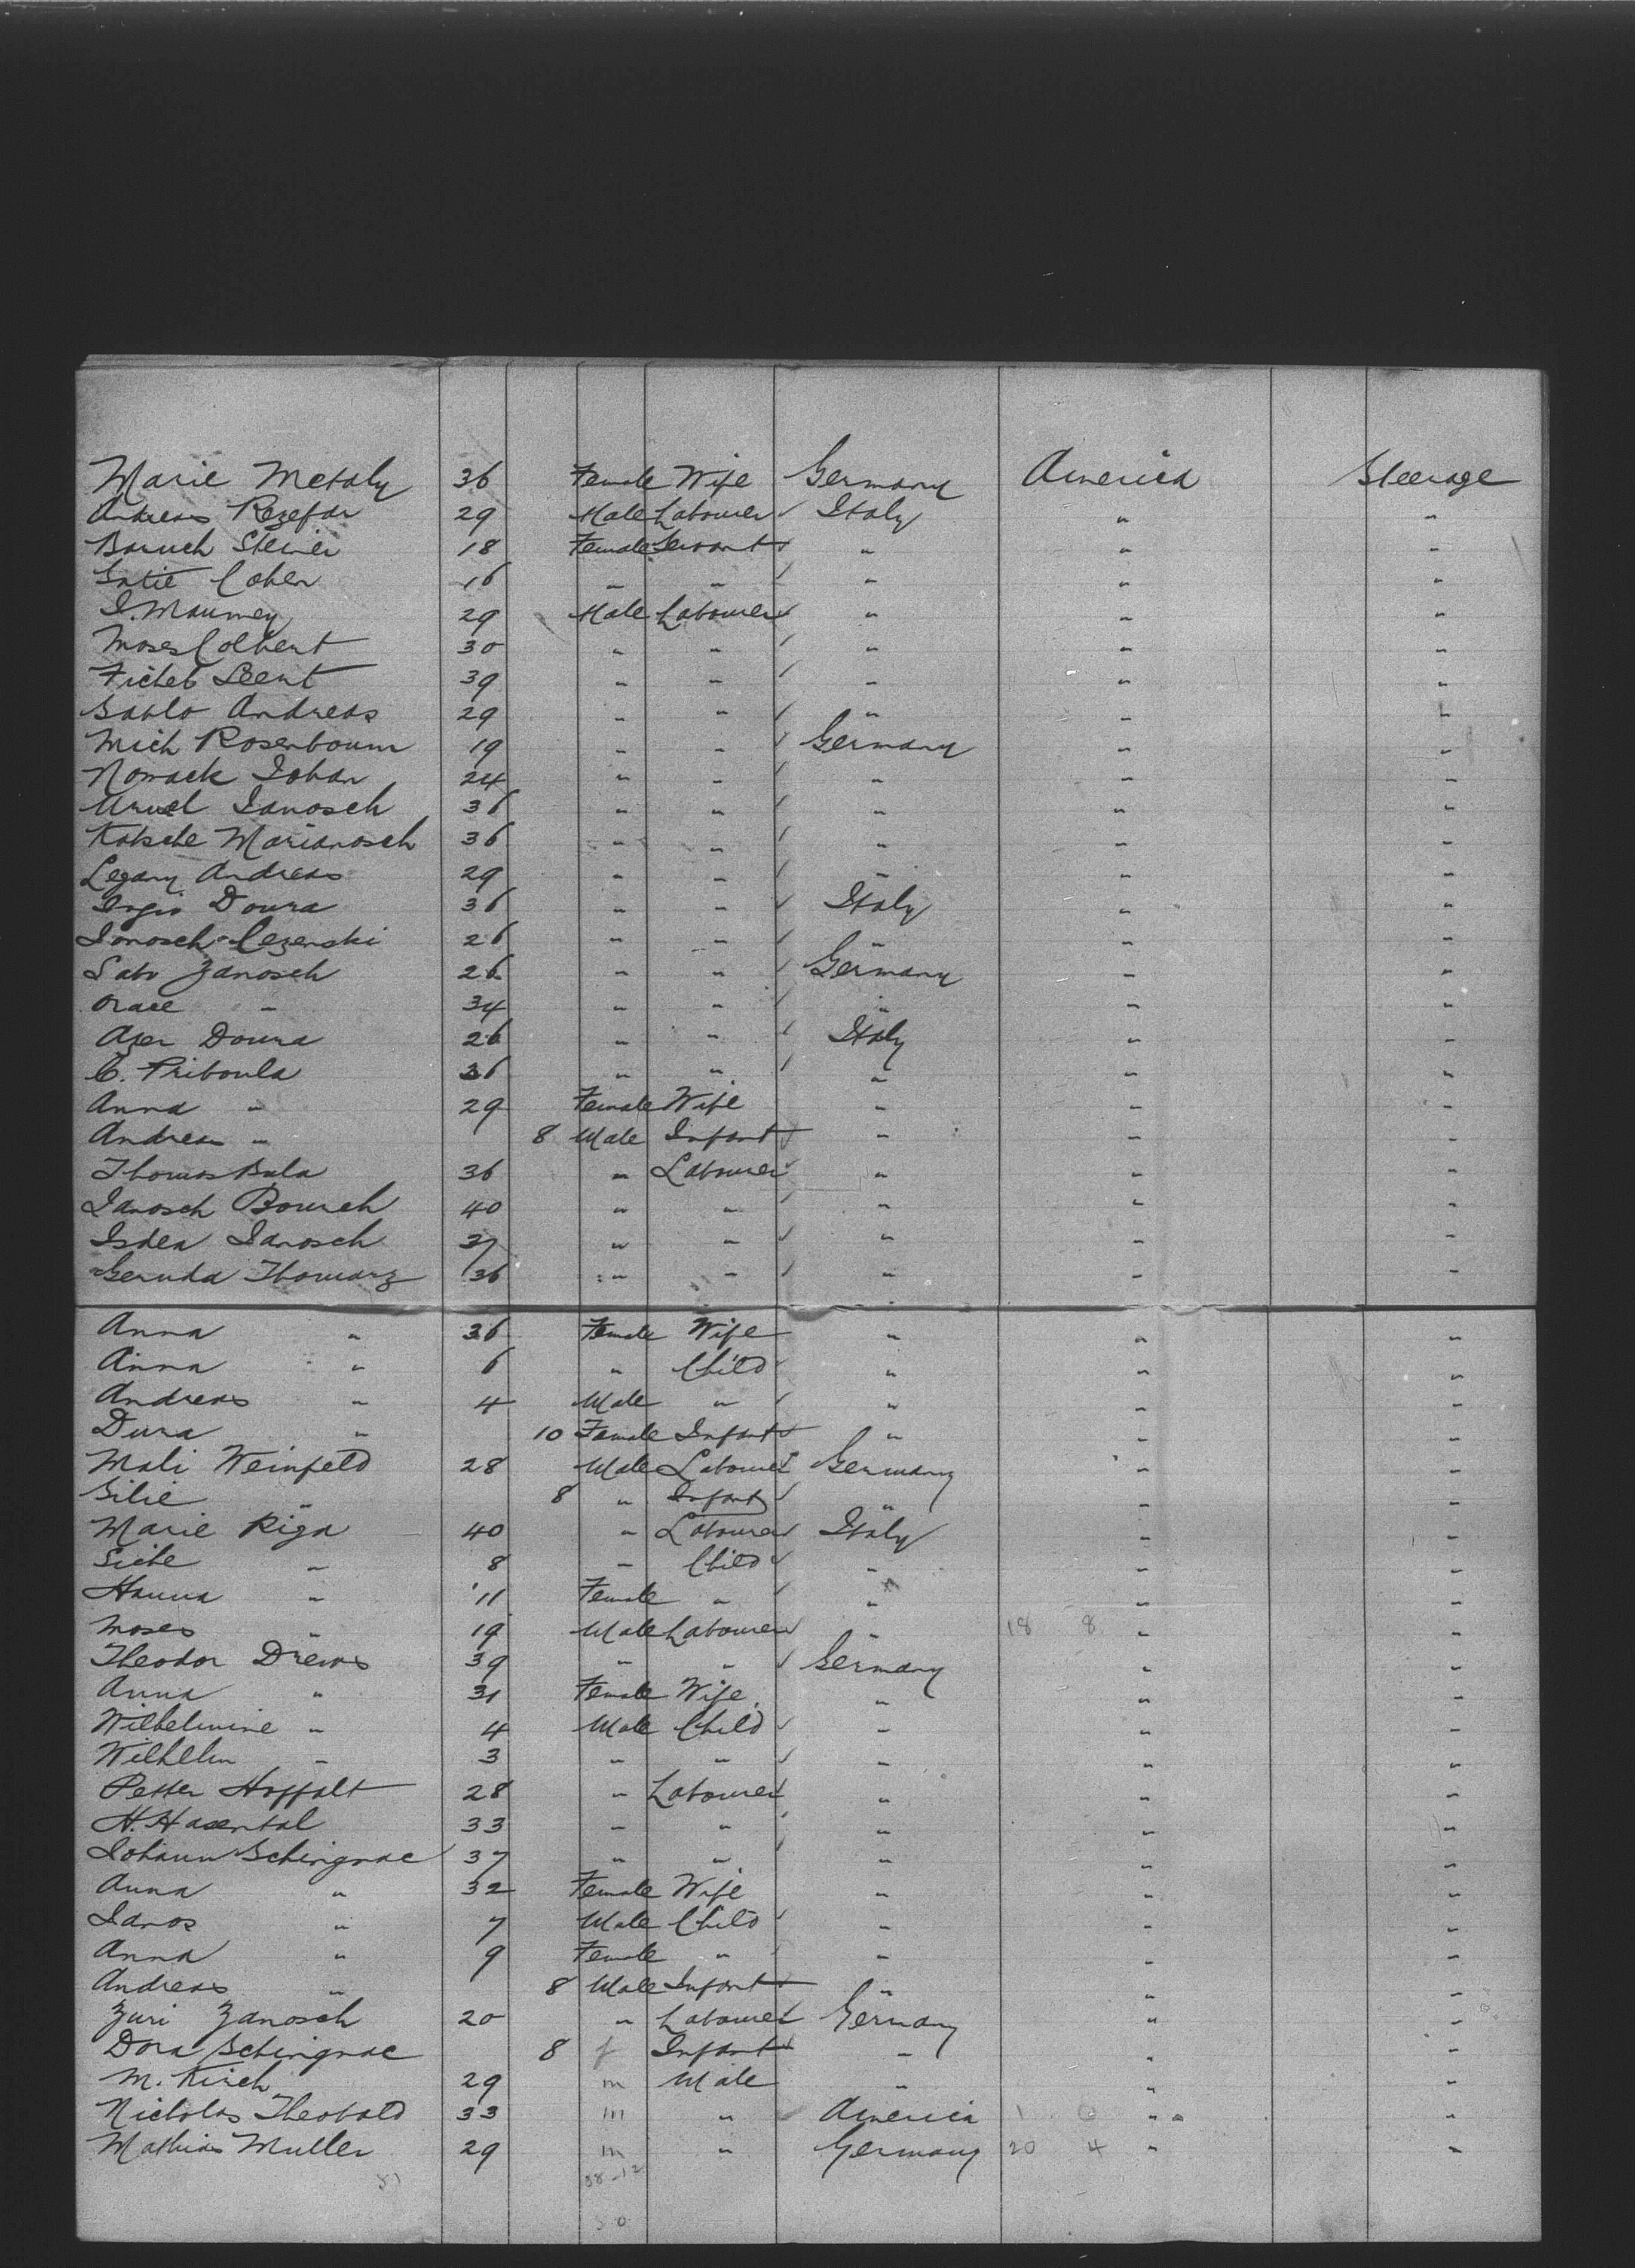 Marie Metaly 36 Female Wife Germany America Steerage
Andreas Rezefar 29 Male Labourer Italy " "
Baruch Steiner 18 Female Servant " " "
Satie Cohen 16 " " " " "
I. Maurney 29 Male Labourer " " "
Moses Colbert 30 " " " " "
Ficheb Leent 39 " " " " "
Sablo Andreas 29 " " " " "
Mich Rosenboum 19 " " Germany " "
Nowack Johan 24 " " " " "
Janosch 36 " " " " "
Katsche Marianosch 36 " " " " "
Legany Andreas 29 " " " " "
Doura 36 " " Italy " "
Janosch Cezenski 26 " " " " "
Sabo Zanosch 26 " " Germany " "
Orace " 34 " " " " "
Azer Doura 26 " " Italy " "
C. Priboula 36 " " " " "
Anna " 29 Female Wife " " "
Andreas " 8 Male Infant " " "
Thomas Bula 36 " Labourer " " "
Janosch Bourch 40 " " " " "
Isdea Janosch 37 " " " " "
Geruda Thomarz 36 " " " " "
Anna " 36 Female Wife " " "
Anna " 6 " Child " " "
Andreas " 4 Male " " " "
Dura " 10 Female Infant " " "
Mali Weinfeld 28 Male Labourer Germany " "
Silie " 8 " Infant " " "
Marie Riga 40 " Labourer Italy " "
Siche " 8 " Child " " "
Hanna " 11 Female " " " "
Moses " 19 Male Labourer " 18 8 " "
Theodor Drews 39 " " Germany " "
Anna " 31 Female Wife " " "
Wilhelmine " 4 Male Child " " "
Wilhelm " 3 " " " " "
Petter Hoffalt 28 " Labourer " " "
H. Hasental 33 " " " " "
Johann Schirgnac 37 " " " " "
Anna " 32 Female Wife " " "
Janos " 7 Male Child " " "
Anna " 9 Female " " " "
Andreas " 8 Male Infant " " "
Zuri Zanosch 20 " Labourer Germany " "
Dora Schirgnac 8 f Infant " " "
M. Kirch 29 m Male " " "
Nicholas Theobald 33 m " America 1 0 " "
Mathias Muller 29 m " Germany 20 4 " "
38-12
50